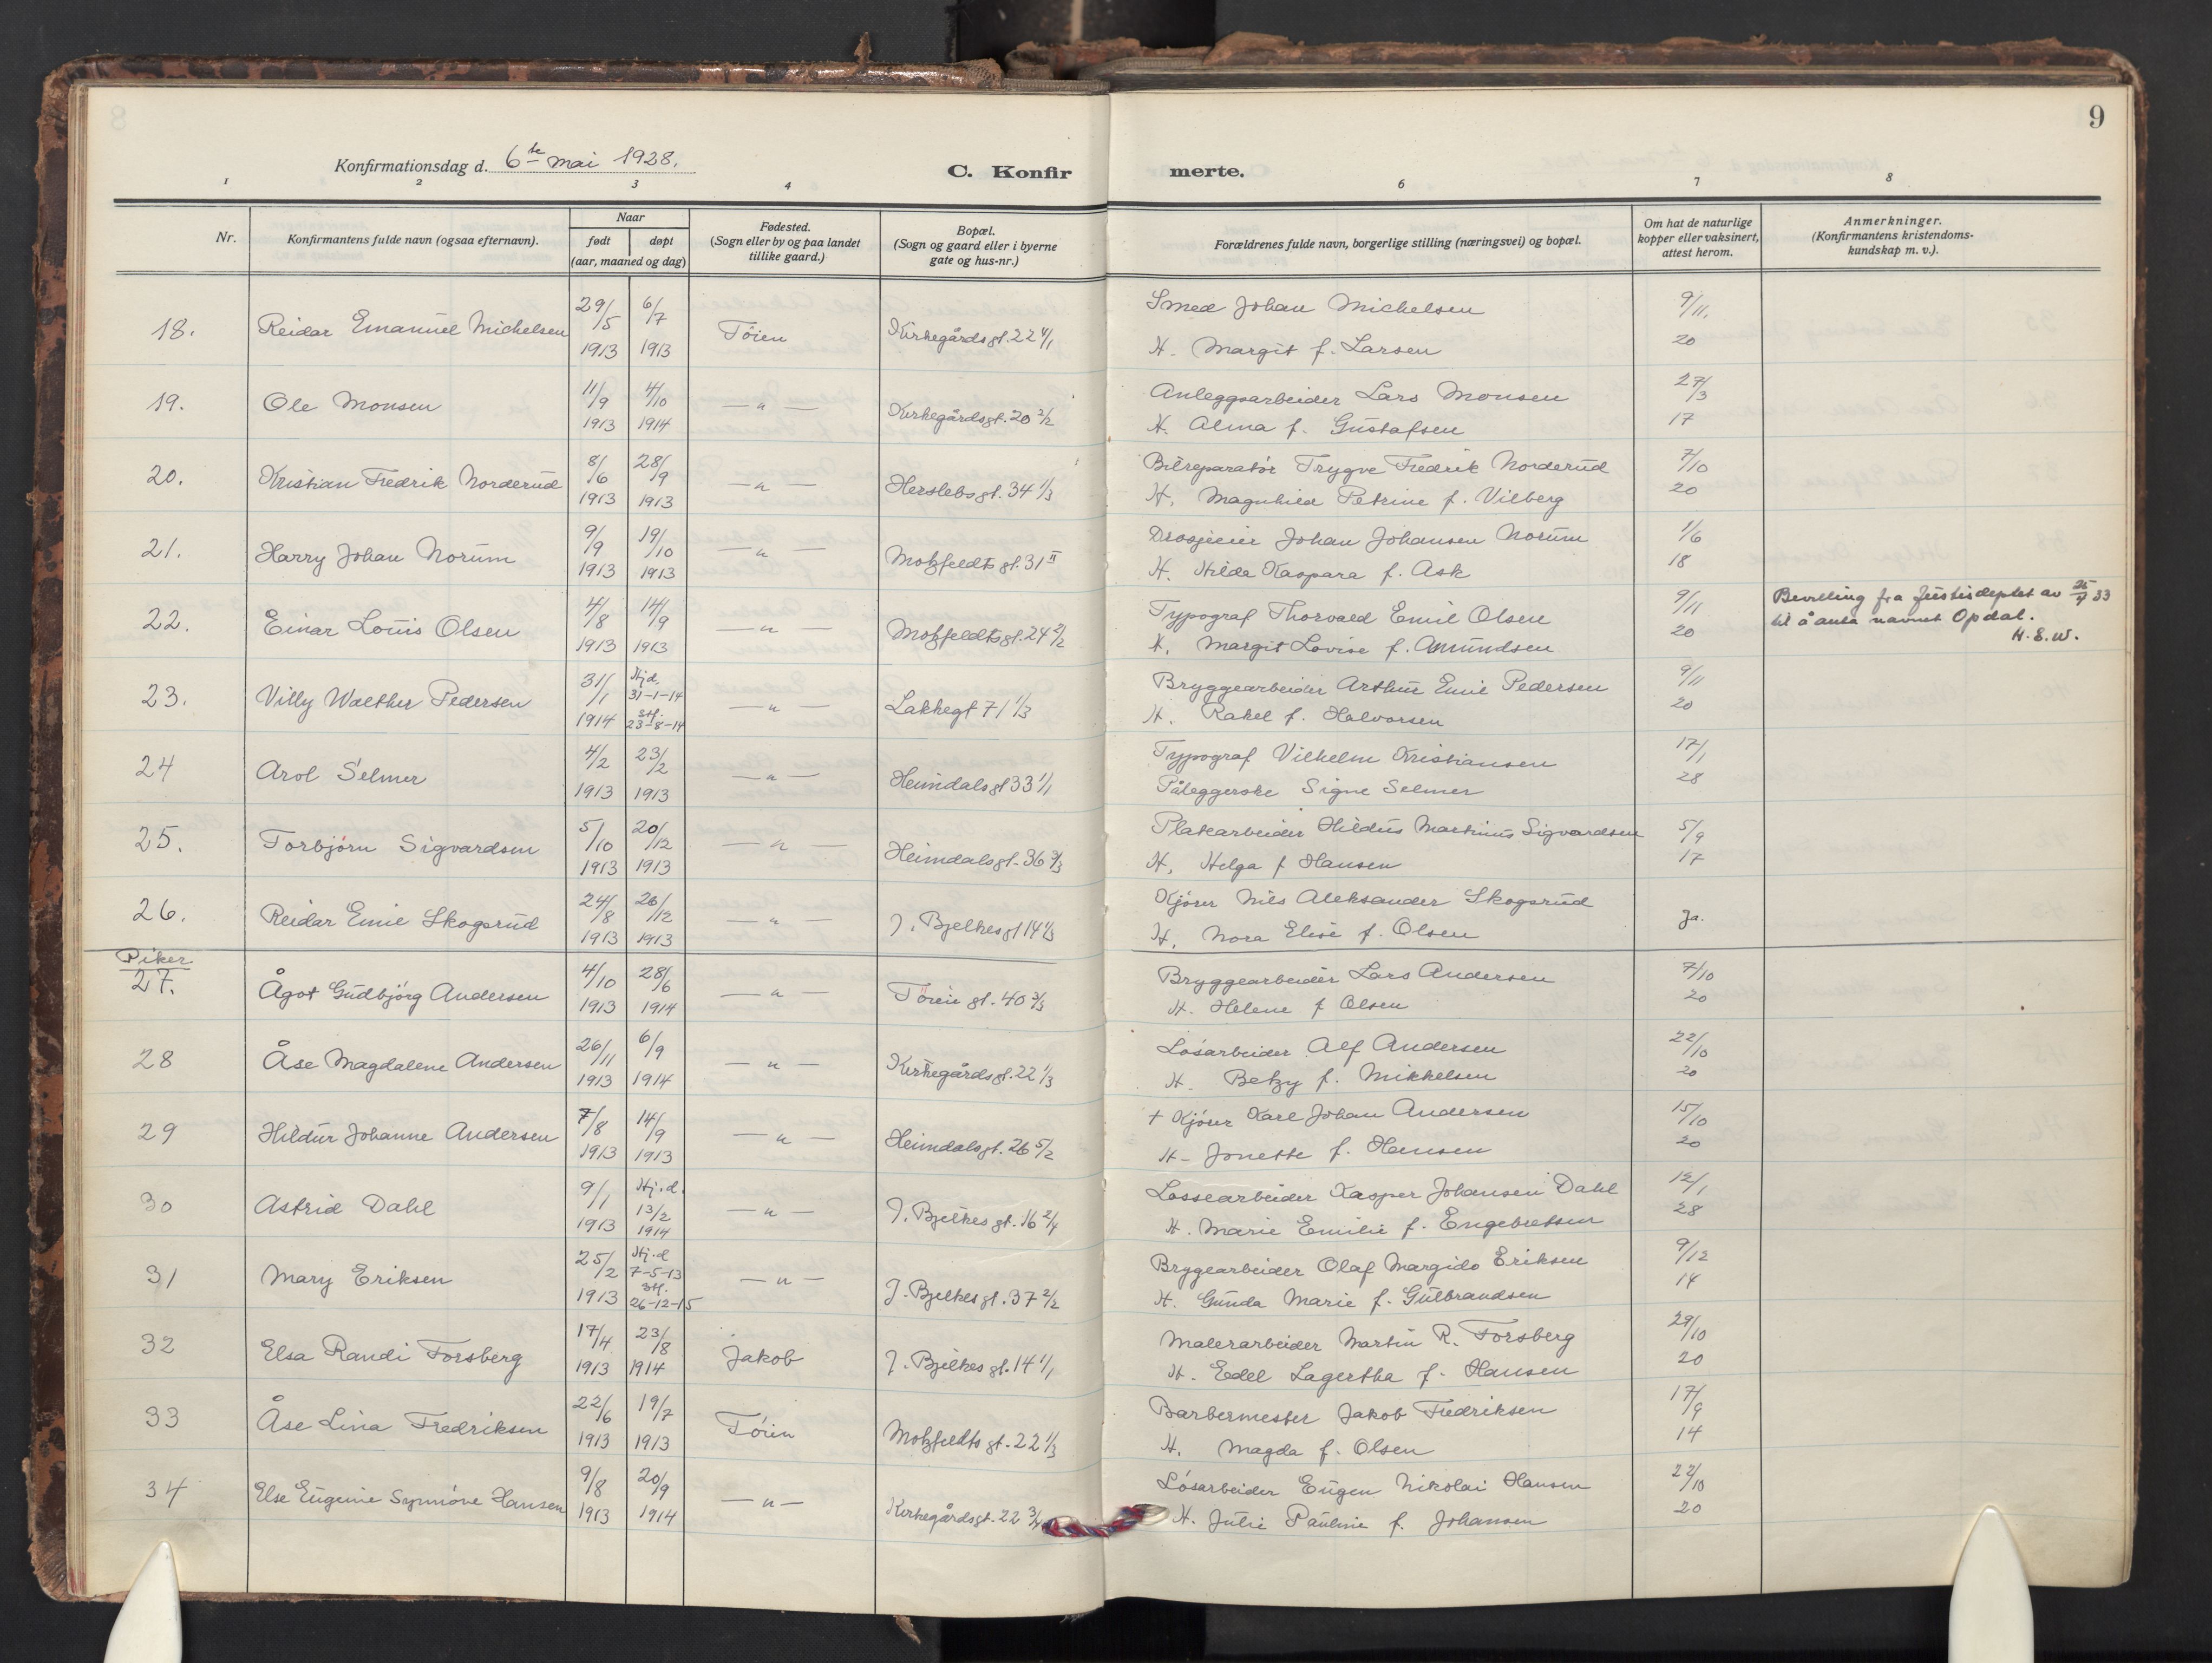 9
Konfirmationsdag d. 6te mai 1928.
C. Konfirmerte.
1 2 3 4 6 7 8
Nr.
Konfirmantens fulde navn (ogsaa efternavn).
Naar
født
døpt
(aar, maaned og dag)
Fødested.
(Sogn eller by og paa landet
tillike gaard.)
Bopæl.
(Sogn og gaard eller i byerne
gate og hus-nr.)
Forældrenes fulde navn, borgerlige stilling (næringsvei) og bopæl.
Om hat de naturlige
kopper eller vaksinert,
attest herom.
Anmerkninger.
(Konfirmantens kristendoms-
kundskap m. v.).
18. Reidar Emanuel Michelsen 29/5 1913 6/7 1913 Töien Kirkegårdsgt. 22 4/1
Smed Johan Michelsen 9/11.
H. Margit f. Larsen 20
19. Ole Monsen 11/9 1913 4/10 1914 — " — Kirkegårdsgt. 20 2/2
Anleggsarbeider Lars Monsen 27/3
H. Alma f. Gustafsen 17
20. Kristian Fredrik Norderud 8/6 1913 28/9 1913 — " — Herslebsgt. 34 1/3
Bilreparatör Trygve Fredrik Norderud 7/10
H. Magnhild Petrine f. Vilberg 20
21. Harry Johan Norum 9/9 1913 19/10 1913 — " — Motzfeldts gt. 31 II
Drosjeeier Johan Johansen Norum 1/6
H. Hilda Kaspara f. Ask 18
22. Einar Louis Olsen 4/8 1913 14/9 1913 — " — Motzfeldtsgt. 24 2/2
Typograf Thorvald Emil Olsen 9/11
H. Margit Lovise f. Amundsen 20
Bevilling fra Justisdeptet av 25/4 33
til å anta navnet Opdal.
H. E. W.
23. Villy Walther Pedersen 31/1 1914 Hjd. 31-1-14 Stf. 23-8-14 — " — Lakkegt 71 1/3
Bryggearbeider Arthur Emil Pedersen 9/11
H. Rakel f. Halvorsen 20
24 Arol Selmer 4/2 1913 23/2 1913 — " — Heimdalsgt 33 1/1
Typograf Vilhelm Kristiansen 17/1
Påleggerske Signe Selmer 28
25. Torbjörn Sigvardsen 5/10 1913 20/12 1913 — " — Heimdalsgt. 36 3/3
Platearbeider Hildus Martinus Sigvardsen 5/9
H. Helga f Hansen 17
26. Reidar Emil Skogsrud 24/8 1913 26/12 1913 — " — J. Bjelkes gt 14 1/3
Kjörer Nils Aleksander Skogsrud Ja.
H. Nora Elise f. Olsen
Piker
27. Ågot Gudbjörg Andersen 4/10 1913 28/6 1914 — " — Töien gt. 40 3/3
Bryggearbeider Lars Andersen 7/10
H. Helene f Olsen 20
28 Åse Magdalene Andersen 26/11 1913 6/9 1914 — " — Kirkegårdsgt. 22 1/3
Lösarbeider Alf Andersen 22/10
H. Betzy f. Mikkelsen 20
29 Hildur Johanne Andersen 7/8 1913 14/9 1913 — " — Heimdalsgt. 26 5/2
+ Kjörer Karl Johan Andersen 15/10
H- Jonette f. Hansen 20
30 Astrid Dahl 9/1 1913 Hj.d. 13/2 1914 — " — J. Bjelkes gt. 16 2/4
Lossearbeider Kasper Johansen Dahl 12/1
H. Marie Emilie f. Engebretsen 28
31 Mary Eriksen 25/2 1913 Hj.d 7-5-13 Stf. 26-12-15 — " — J. Bjelkes gt. 37 2/2
Brygearbeider Olaf Margido Eriksen 9/12
H. Gunda Marie f. Gulbrandsen 14
32 Elsa Randi Forsberg 17/4 1913 23/8 1914 Jakob J. Bjelkes gt. 14 1/1
Malerarbeider Martin R. Forsberg 29/10
H. Edel Lagertha f. Hansen 20
33 Åse Lina Fredriksen 22/6 1913 19/7 1913 Töien Motzfeldts gt. 22 1/3
Barbermester Jakob Fredriksen 17/9
H. Magda f. Olsen 14
34 Else Eugenie Synnöve Hansen 9/8 1913 20/9 1914 — " — Kirkegårdsgt. 22 3/4
Lösarbeider Eugen Nikolai Hansen 22/10
H. Julie Pauline f. Johansen 20